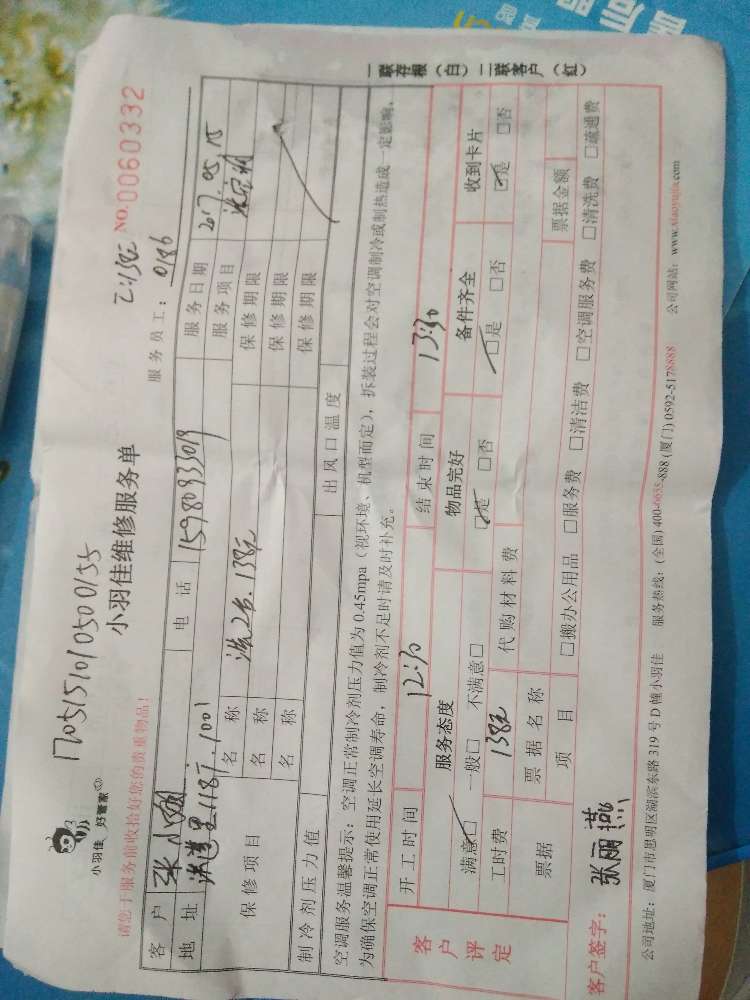 170515101050 0155
小羽佳 好管家
小羽佳维修服务单
NO.0060332
请您于服务前收拾好您的贵重物品!
服务员工: 0186
客户 张小姐 电话 15980933019 服务日期 2017.05.15
地址 118号.1001 服务项目
保修项目 名称 洗2台.138元 保修期限
名称 保修期限
名称 保修期限
制冷剂压力值 出风口温度
空调服务温馨提示:空调正常制冷剂压力值为0.45mpa(视环境、机型而定),拆装过程会对空调制冷或制热造成一定影响,
为确保空调正常使用延长空调寿命,制冷剂不足时请及时补充。
一联存根(白)二联客户(红)
客户评定
开工时间 12:30 结束时间 13:30
服务态度 物品完好 备件齐全 收到卡片
满意□ 一般□ 不满意□ □是 □否 □是 □否 □是 □否
工时费 138元 代购材料费
票据 票据名称 票据金额
项目 □搬办公用品 □服务费 □清洁费 □空调服务费 □清洗费 □疏通费
客户签字: 张丽燕
公司地址:厦门市思明区湖滨东路319号D幢小羽佳 服务热线:(全国)400-6655-888(厦门)0592-5178888 公司网站:www.xiaoyujia.com